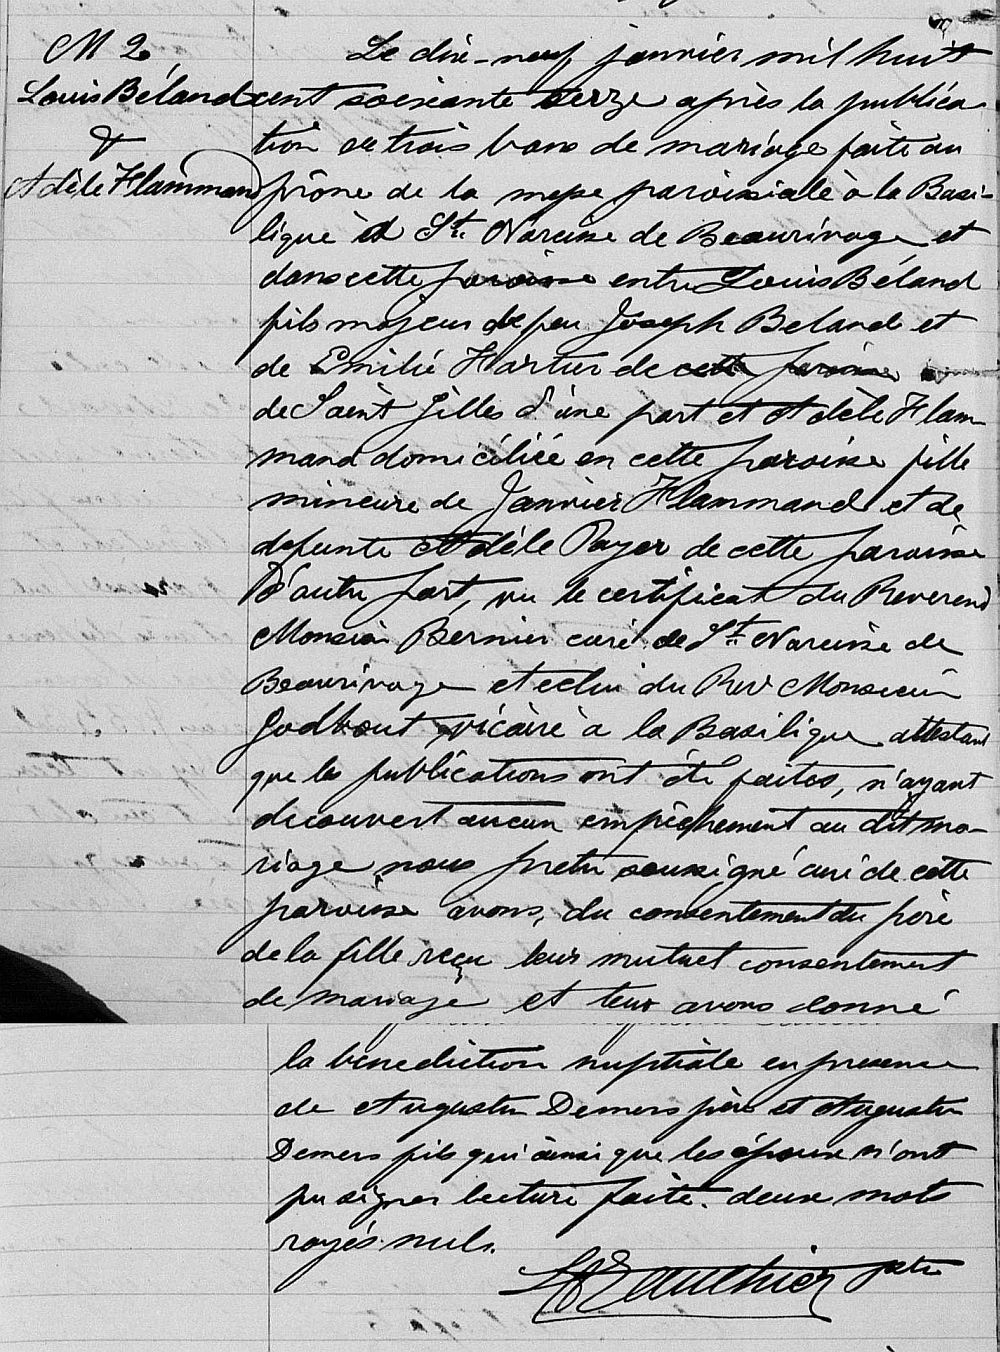 M 2
Louis Béland
&
Adèle Flammand
Le dix-neuf janvier mil huit
cent soixante seize après la publica
tion de trois bans de mariage faite au
prône de la messe paroissiale à la Basi-
lique et St. Narcisse de Beaurivage et
dans cette paroisse entre Louis Béland
fils majeur de feu Joseph Beland et
de Emilie Hartier de cette paroisse
de Saint Gilles d'une part et Adèle Flam
mand domiciliée en cette paroisse fille
mineure de Janvier Flammand et de
defunte Adèle Payer de cette paroisse
D'autre part, vu le certificat du Reverend
Monsieur Bernier curé de St. Narcisse de
Beaurivage et celui du Rev Monsieur
Godbout vicaire à la Basilique attestant
que les publications ont été faites, n'ayant
decouvert aucun empêchement au dit ma-
riage nous pretre soussigné curé de cette
paroisse avons, du consentement du père
de la fille reçu leur mutuel consentement
de mariage et leur avons donné
la benediction nuptiale en presence
de Augustin Demers père et Augustin
Demers fils qui ainsi que les époux n'ont
pu signer lecture faite. deux mots
rayés nuls.
Gauthier ptre